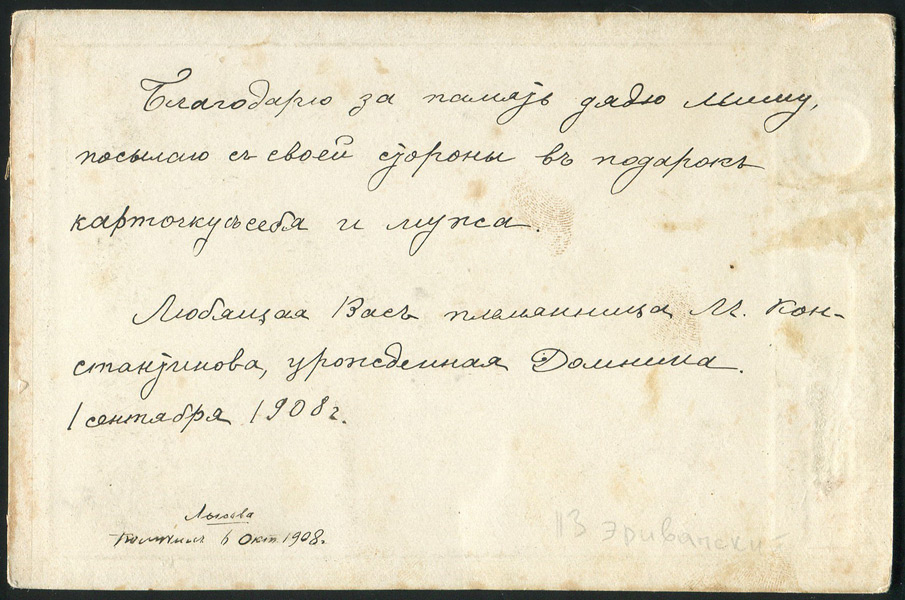 Благодарю за память дядю Мишу,
посылаю съ своей стороны въ подарокъ
карточку съ себя и мужа.
Любящая Васъ племянница М. Кон-
стантинова, урожденная Домнина.
1 сентября 1908 г.
6 Окт. 1908.
13 Эривански